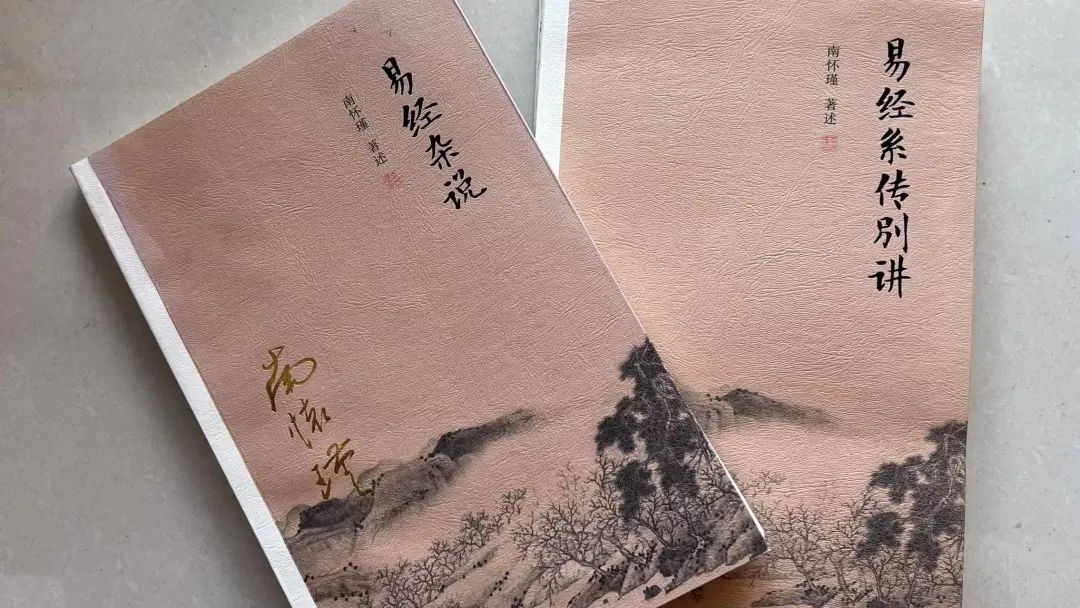 易经杂说
南怀瑾 著述
南怀瑾
易经系传别讲
南怀瑾 著述